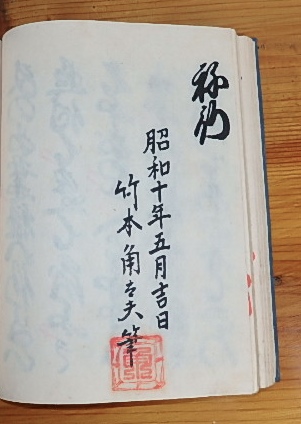 昭和十年五月吉日
竹本角太夫筆